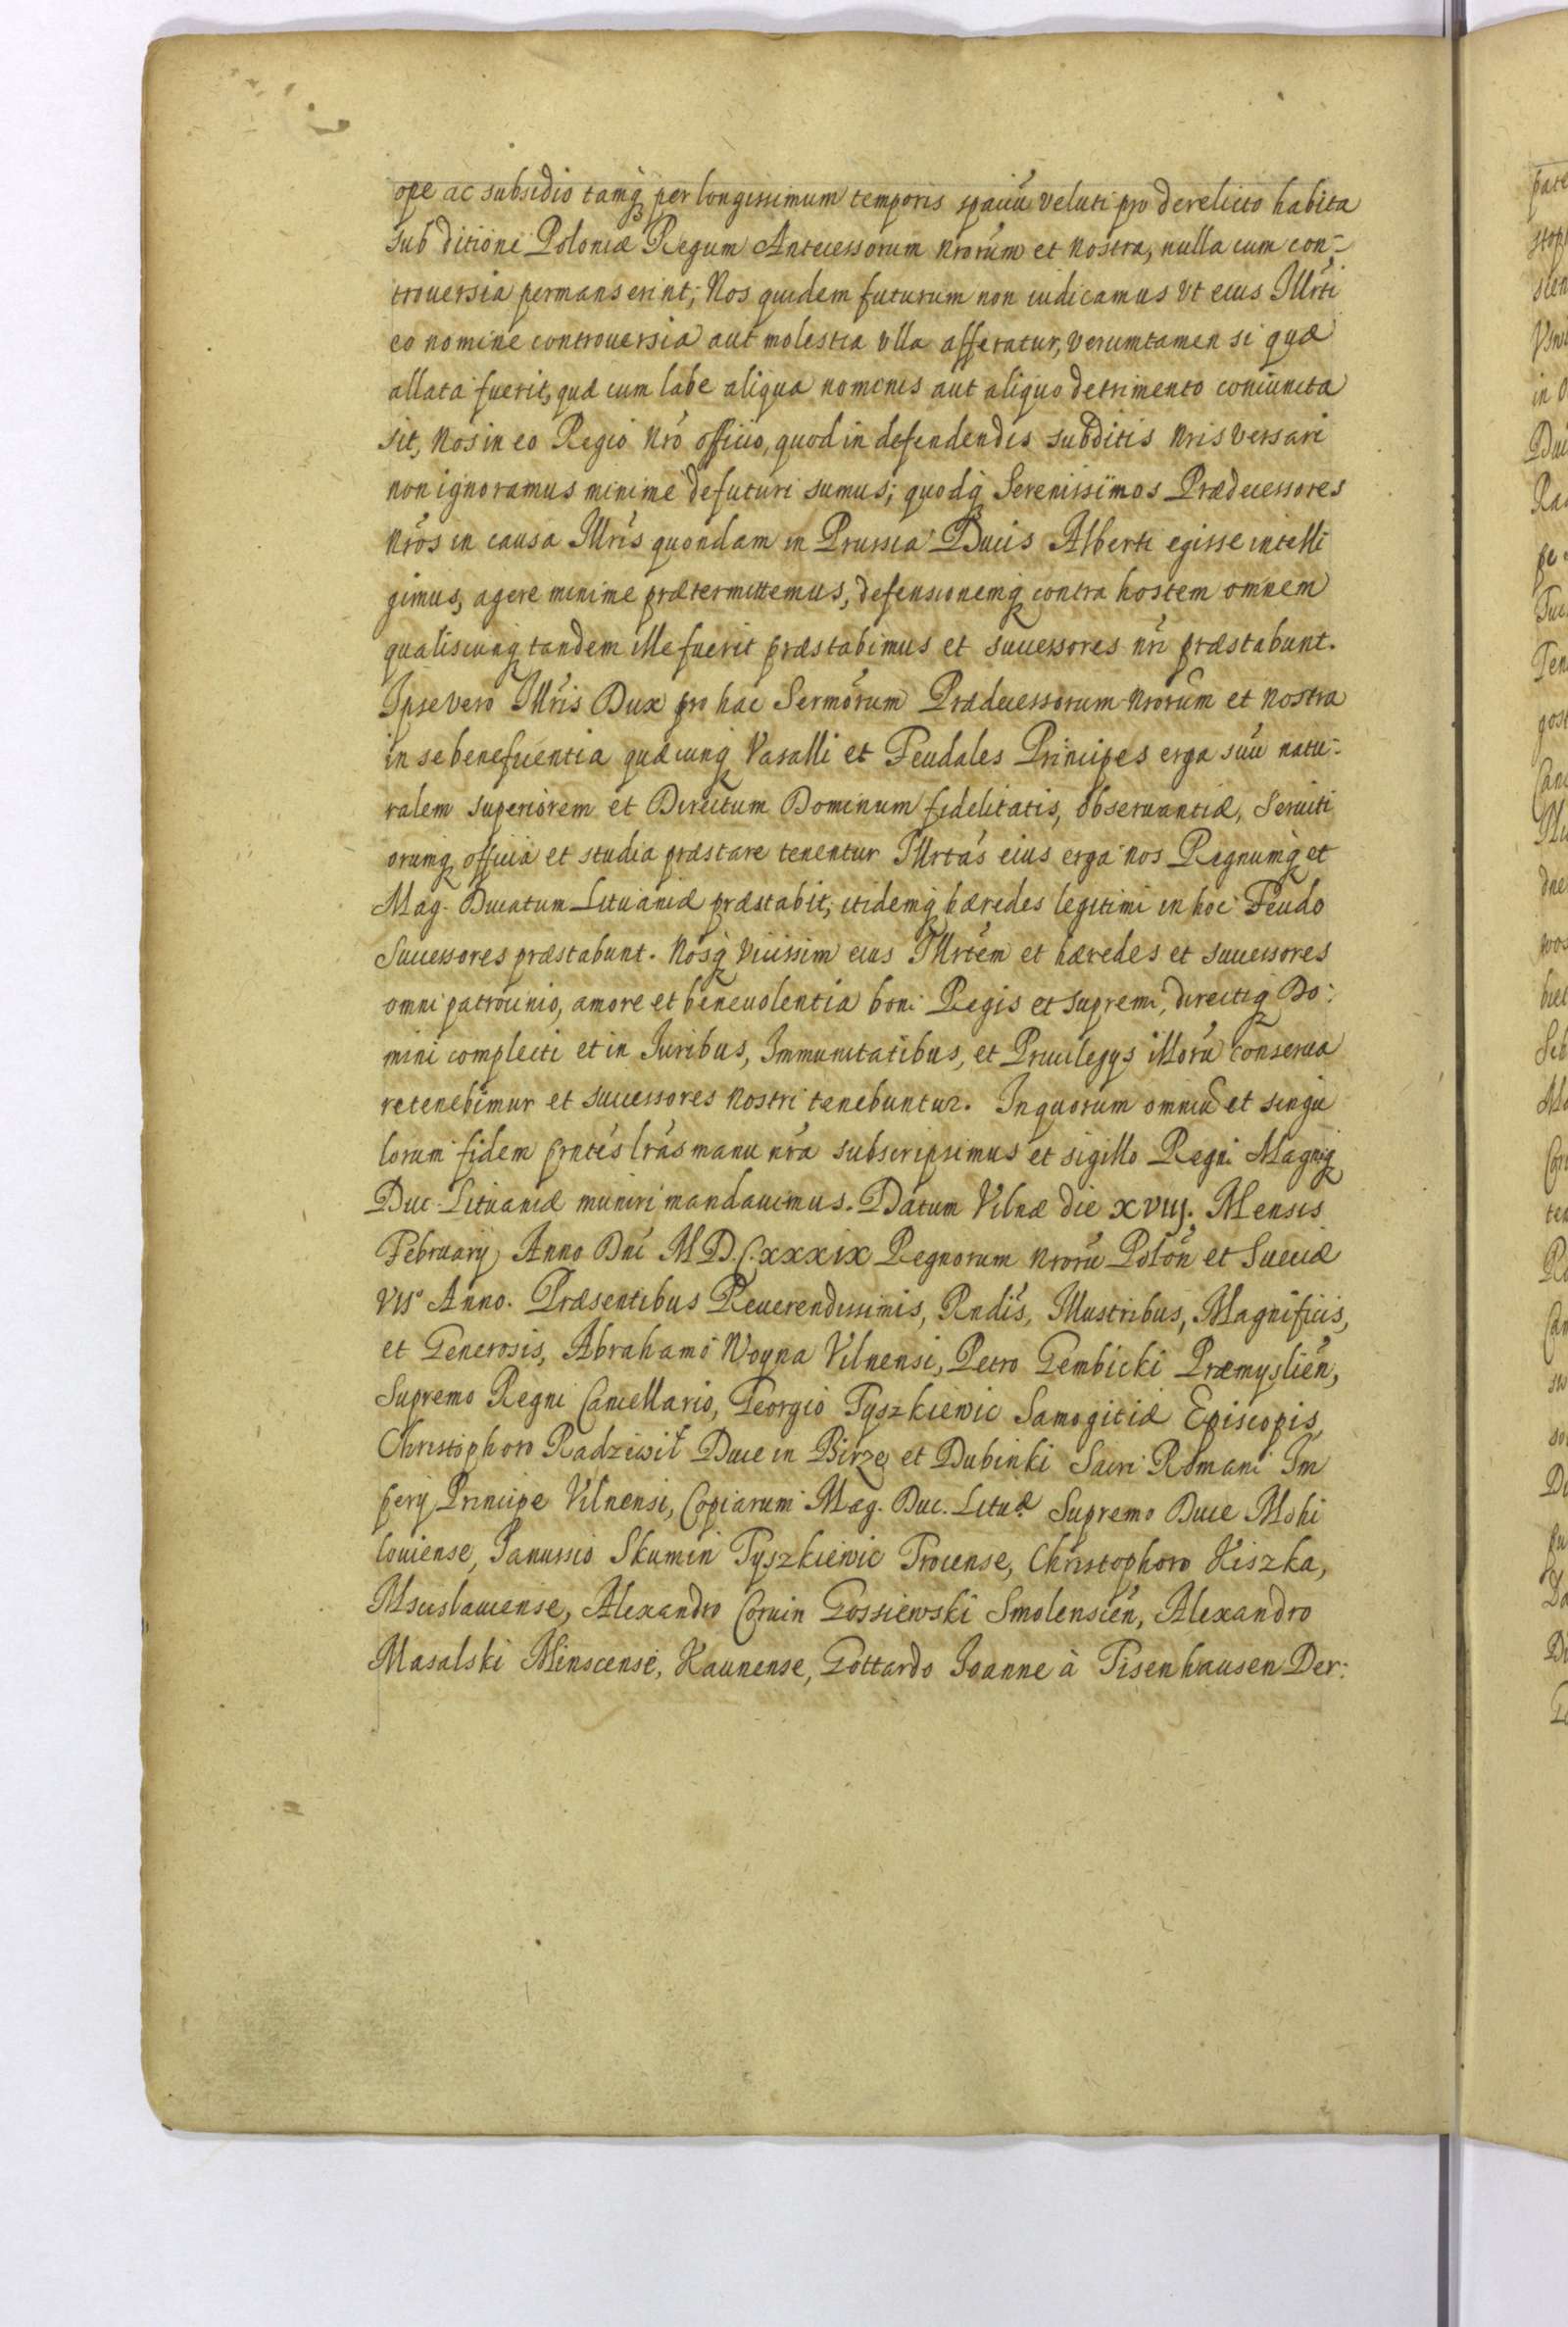 ope ac subsidio tamq́; per longissimum temporis spaciũ veluti pro derelicto habita
sub ditione Poloniæ Regum Antecessorum nrorũm et nostra, nulla cum con-
trouersia permanserint; Nos quidem futurum non iudicamus vt eius Illrti
eo nomine controuersia aut molestia vlla afferatur, verumtamen si quæ
allata fuerit, quæ cum labe aliqua nominis aut aliquo detrimento coniuncta
sit, Nos in eo Regio nrõ officio, quod in defendendis subditis nris versari
non ignoramus minime defuturi sumus; quodq; Serenissimos Prædecessores
nrõs in causa Illris quondam in Prussia Ducis Alberti egisse intelli
gimus, agere minime prætermittemus, defensionemq; contra hostem omnem
qualiscunq; tandem ille fuerit præstabimus et successores nri præstabunt.
Ipse vero Illris Dux pro hac Sermõrum Prædecessorum nrorum et nostra
in se beneficentia quæcunq; Vasalli et Feudales Principes erga suũ natu-
ralem superiorem et Directum Dominum fidelitatis, obseruantiæ, Seruiti
orumq; officia et studia præstare tenentur Illrtas eius erga nos Regnumq; et
Mag. Ducatum Lituaniæ præstabit, itidemq; hæredes legitimi in hoc Feudo
Successores præstabunt. Nosq; vicissim eius Illrtem et hæredes et successores
omni patrocinio, amore et beneuolentia boni Regis et supremi, directiq; Do-
mini complecti et in Iuribus, Immunitatibus, et Priuilegys illorũ conserua
re tenebimur et successores nostri tenebuntur. In quorum omniũ et singu
lorum fidem prntes lras manu nra subscripsimus et sigillo Regni Magniq;
Duc. Lituaniæ muniri mandauimus. Datum Vilnæ die xviij. Mensis
February Anno Dni M D.C.xxxix Regnorum nrorũ Polon et Sueciæ
VIIº Anno. Præsentibus Reuerendissimis, Rndis, Illustribus, Magnificis,
et Generosis, Abrahamo Woyna Vilnensi, Petro Gembicki Præmyslien,
Supremo Regni Cancellario, Georgio Tyszkiewic Samogitiæ Episcopis,
Christophoro Radziwił Duce in Birze et Dubinki Sacri Romani Im
pery Principe Vilnensi, Copiarum Mag. Duc. Lituæ Supremo Duce Mohi
louiense, Janussio Skumin Tyszkiewic Trocense, Christophoro Kiszka,
Mscislauiense, Alexandro Coruin Gossiewski Smolensien, Alexandro
Masalski Minscense, Kaunense, Gottardo Joanne à Tisenhausen Der-